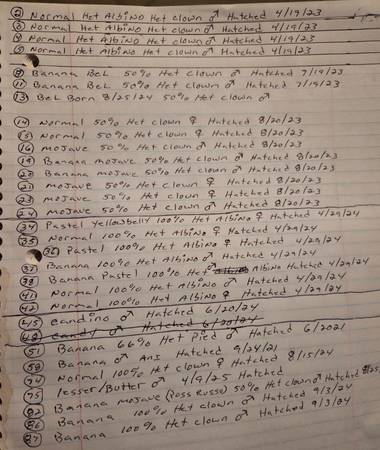 ② Normal Het Albino Het clown ♂ Hatched 4/19/23
③ Normal Het Albino Het clown ♂ Hatched 4/19/23
④ Normal Het Albino Het clown ♂ Hatched 4/19/23
⑤ Normal Het Albino Het clown ♂ Hatched 4/19/23
⑧ Banana Bel 50% Het clown ♂ Hatched 7/19/23
⑪ Banana Bel 50% Het clown ♂ Hatched 7/19/23
⑬ Bel Born 8/25/24 50% Het clown ♂
⑭ Normal 50% Het clown ♀ Hatched 8/20/23
⑮ Normal 50% Het clown ♀ Hatched 8/20/23
⑯ mojave 50% Het clown ♂ Hatched 8/20/23
⑲ Banana mojave 50% Het clown ♂ Hatched 8/20/23
Banana mojave 50% Het clown ♂ Hatched 8/20/23
mojave 50% Het clown ♀ Hatched 8/20/23
mojave 50% Het clown ♂ Hatched 8/20/23
㉔ mojave 50% Het clown ♂ Hatched 8/20/23
㉞ Pastel Yellowbelly 100% Het Albino ♀ Hatched 4/29/24
㉟ Normal 100% Het Albino ♀ Hatched 4/29/24
㊱ Pastel 100% Het Albino ♀ Hatched 4/29/24
㊲ Banana 100% Het Albino ♂ Hatched 4/29/24
㊳ Banana Pastel 100% Het Albino Hatched 4/29/24
㊶ Normal 100% Het Albino ♂ Hatched 4/29/24
㊷ Normal 100% Het Albino ♀ Hatched 4/29/24
㊺ candino ♂ Hatched 6/20/24
candy ♂ Hatched 6/20/24
(51) Banana 66% Het Pied ♂ Hatched 6/2021
(58) Banana ♂ Ans Hatched 9/24/21
(74) Normal 100% Het clown ♀ Hatched 8/15/24
(75) lesser/Butter ♂ 4/9/25 Hatched
(82) Banana mojave (Ross Russe) 50% Het clown ♂ Hatched
(86) Banana 100% Het clown ♂ Hatched 9/3/24
(87) Banana 100% Het clown ♂ Hatched 9/3/24